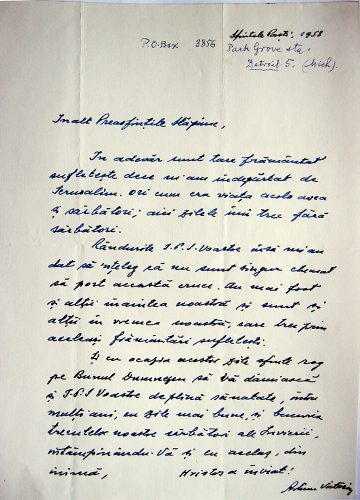 Sfintele Paști, 1958
P.O. Box 3856
Park Grove sta.
Detroit 5. (Mich).
Inalt Preasfințite Stăpîne,
In adevăr sunt tare frămîntat
sufletește dece mi-am îndepărtat de
Ierusalim. Ori cum era viața acolo avea
și sărbători; aici zilele îmi trec fără
sărbători.
Rândurile I.P.S. Voastre însă mi-au
dat să 'nțeleg că nu sunt singur chemat
să port această cruce. Au mai fost
și alții înaintea noastră și sunt și
alții în vremea noastră, care trec prin
aceleași frământări sufletești.
Și cu ocazia acestor zile sfinte rog
pe Bunul Dumnezeu să Vă dăruiască
și I.P.S Voastre deplină sănatate, întru
mulți ani, cu zile mai bune, și bucuria
trecutelor noastre sărbători ale Invierii,
întâmpinându-Vă și cu acelaș, din
inimă, Hristos a înviat!